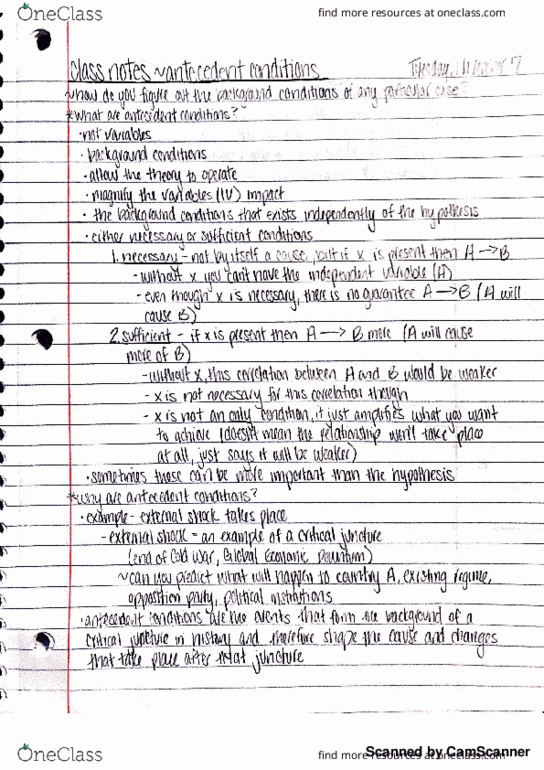 OneClass
find more resources at oneclass.com
class notes ~ antecedent conditions
Tuesday, 7
~how do you figure out the background conditions of any particular case?
*what are antecedent conditions?
·not variables
·background conditions
·allow the theory to operate
·magnify the variables (IV) impact
·the background conditions that exists independently of the hypothesis
·either necessary or sufficient conditions
1. necessary - not by itself a cause, but if x is present then A → B
-without x you can't have the independent variable (A)
-even though x is necessary, there is no guarantee A → B (A will
cause B)
2. sufficient - if x is present then A → B more (A will cause
more of B)
-without x, this correlation between A and B would be weaker
-x is not necessary for this correlation though
-x is not an only condition, it just amplifies what you want
to achieve (doesn't mean the relationship won't take place
at all, just says it will be weaker)
·sometimes these can be more important than the hypothesis
*why are antecedent conditions?
·example - external shock takes place
-external shock = an example of a critical juncture
(end of Cold War, Global Economic Downturn)
~can you predict what will happen to country A, existing regime,
opposition party, political institutions
·antecedent conditions are the events that form the background of a
critical juncture in history and therefore shape the cause and changes
that take place after that juncture
OneClass
find more resources at oneclass.com
Scanned by CamScanner